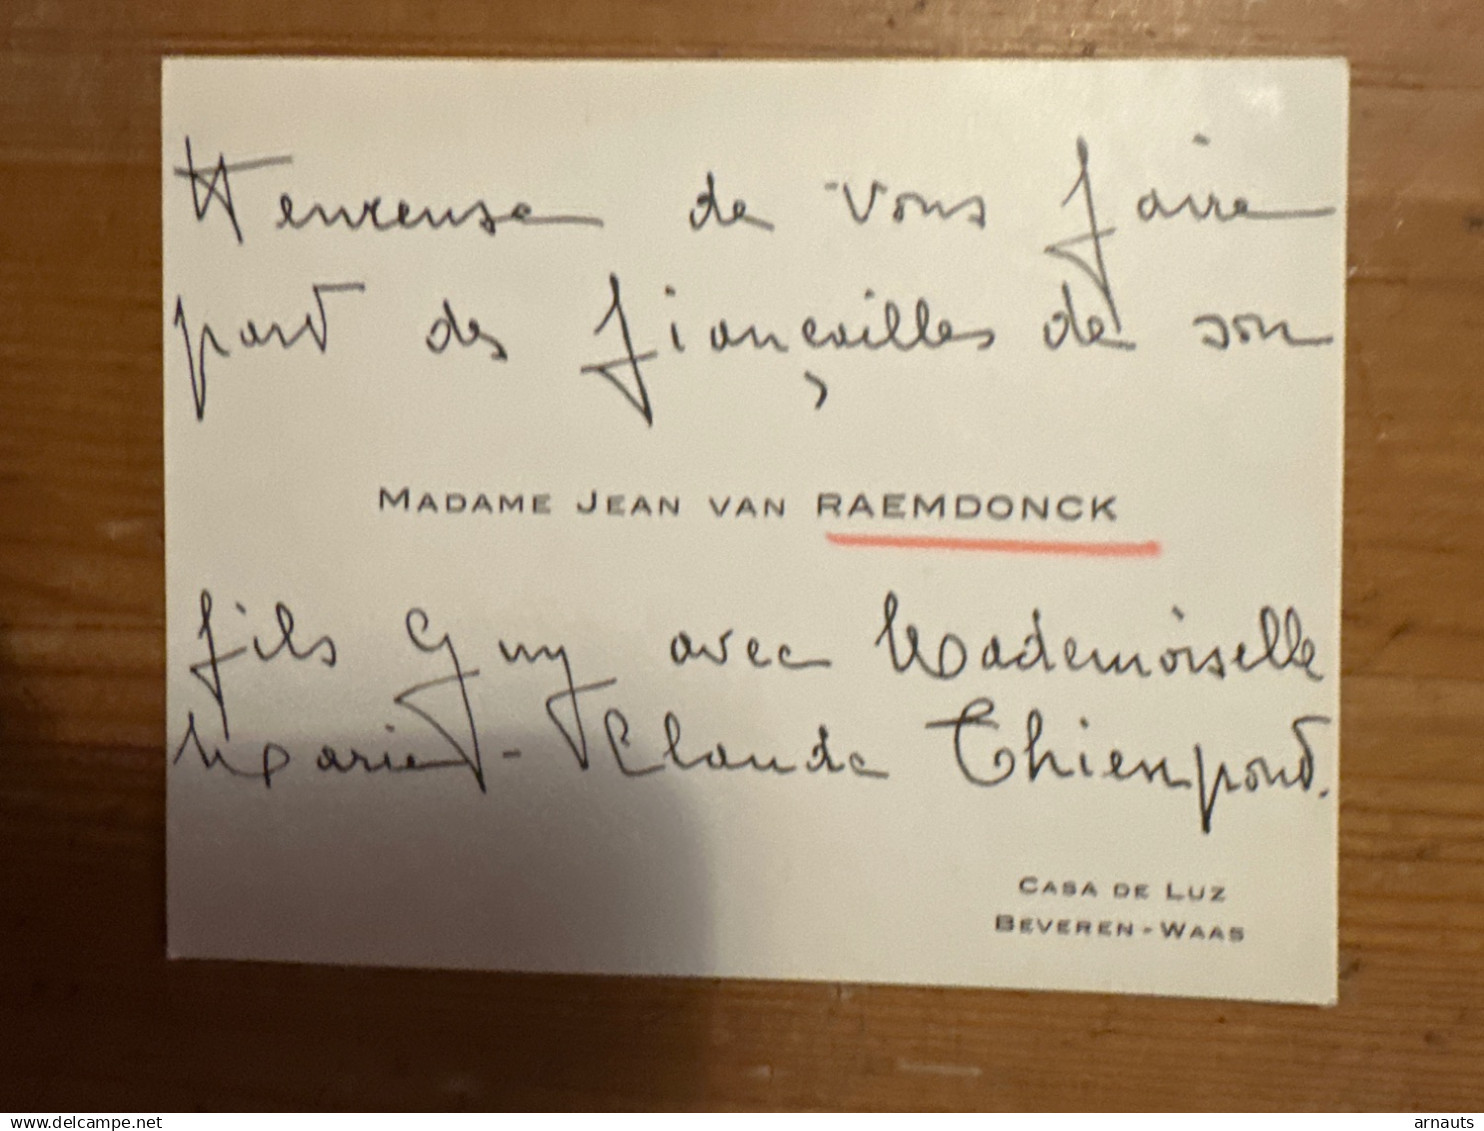 Heureuse de vous faire
part des fiançailles de son
MADAME JEAN VAN RAEMDONCK
fils Guy avec Mademoiselle
Marie-Claude Thienpont.
CASA DE LUZ
BEVEREN-WAAS
www.delcampe.net
arnauts